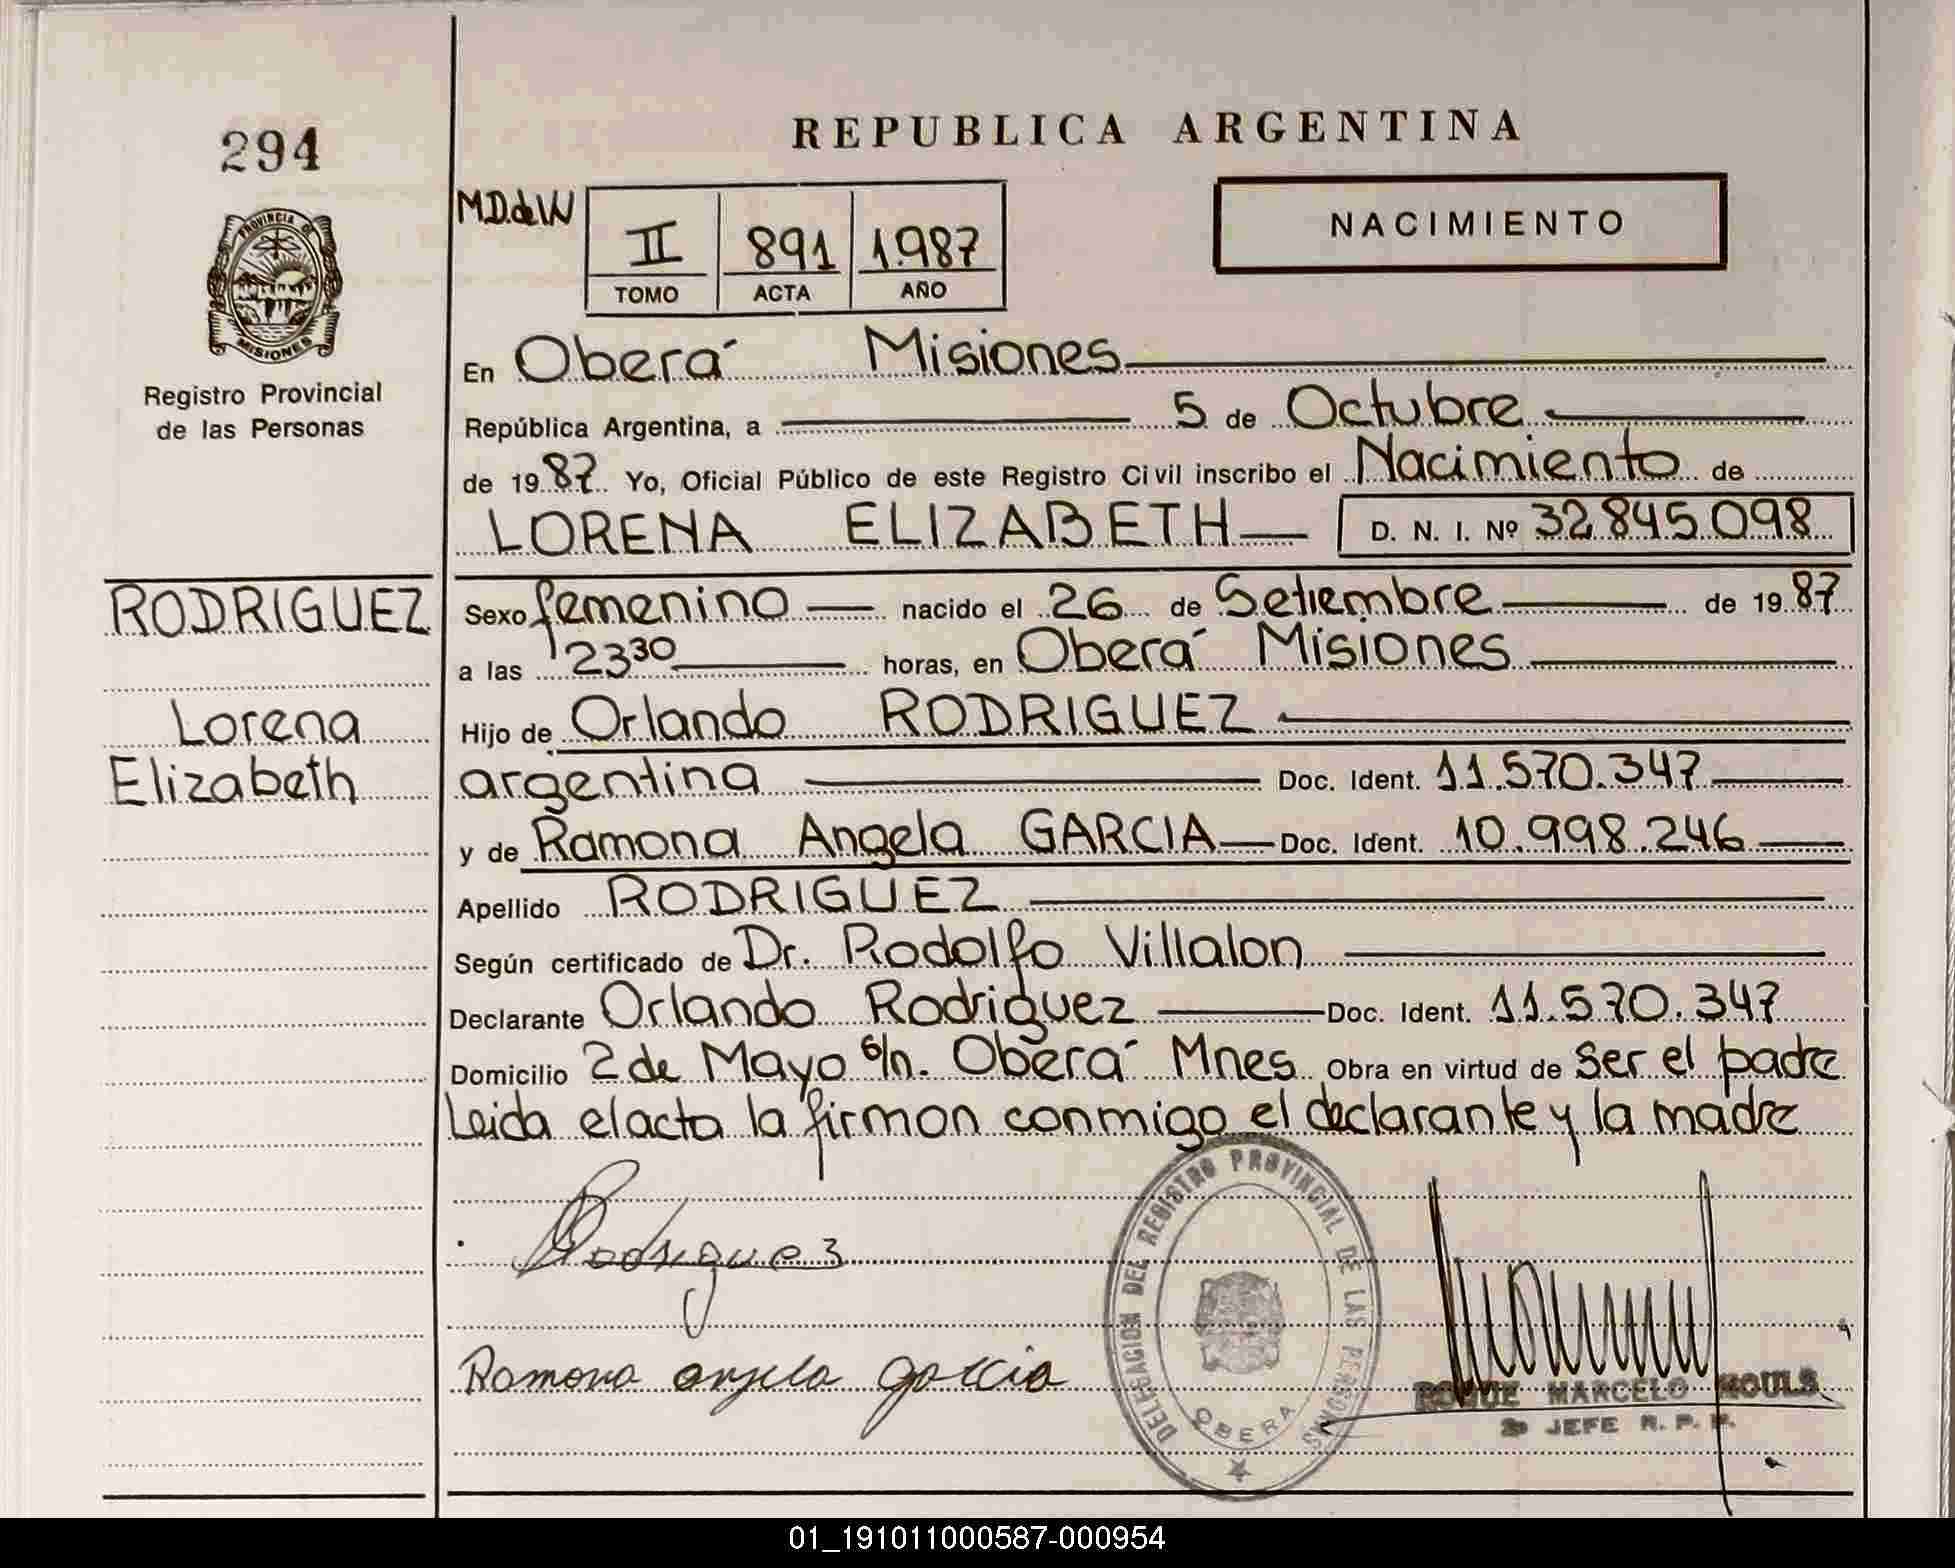 294
PROVINCIA DE
MISIONES
Registro Provincial
de las Personas
RODRIGUEZ
Lorena
Elizabeth
REPUBLICA ARGENTINA
M.D.de W
II 891 1.987
TOMO ACTA AÑO
NACIMIENTO
En Oberá Misiones
República Argentina, a 5 de Octubre
de 1987 Yo, Oficial Público de este Registro Civil inscribo el Nacimiento de
LORENA ELIZABETH D. N. I. Nº 32.845.098
Sexo femenino nacido el 26 de Setiembre de 1987
a las 23³⁰ horas, en Oberá Misiones
Hijo de Orlando RODRIGUEZ
argentina Doc. Ident. 11.570.347
y de Ramona Angela GARCIA Doc. Ident. 10.998.246
Apellido RODRIGUEZ
Según certificado de Dr. Rodolfo Villalon
Declarante Orlando Rodriguez Doc. Ident. 11.570.347
Domicilio 2 de Mayo s/n. Oberá Mnes Obra en virtud de Ser el padre
Leida el acta la firman conmigo el declarante y la madre
Rodriguez
Ramona angela garcia
DELEGACION DEL REGISTRO PROVINCIAL DE LAS PERSONAS
OBERA
ROQUE MARCELO MOULS
JEFE R. P. P.
01_191011000587-000954